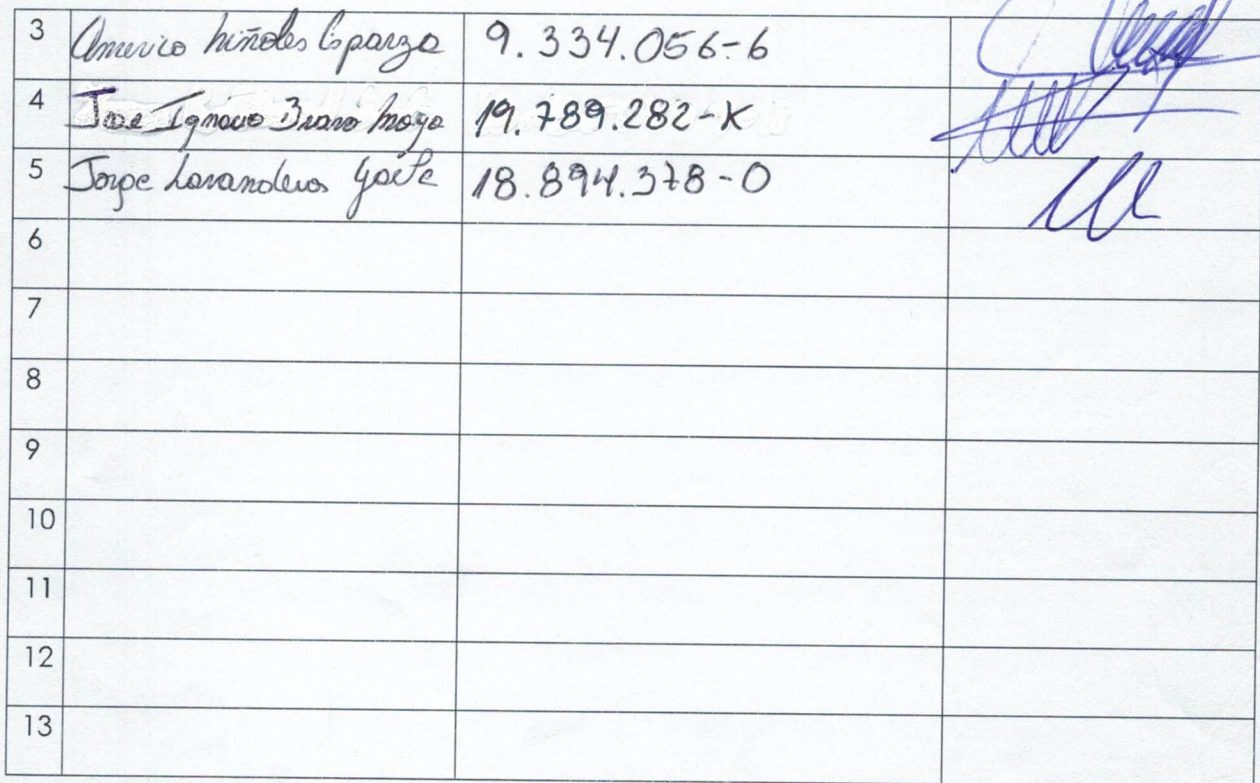 3 Americo Miñoles Esparza 9.334.056-6
4 Jose Ignacio Bravo Moya 19.789.282-K
5 Jorge Lavanderos Gaete 18.894.378-0
6
7
8
9
10
11
12
13